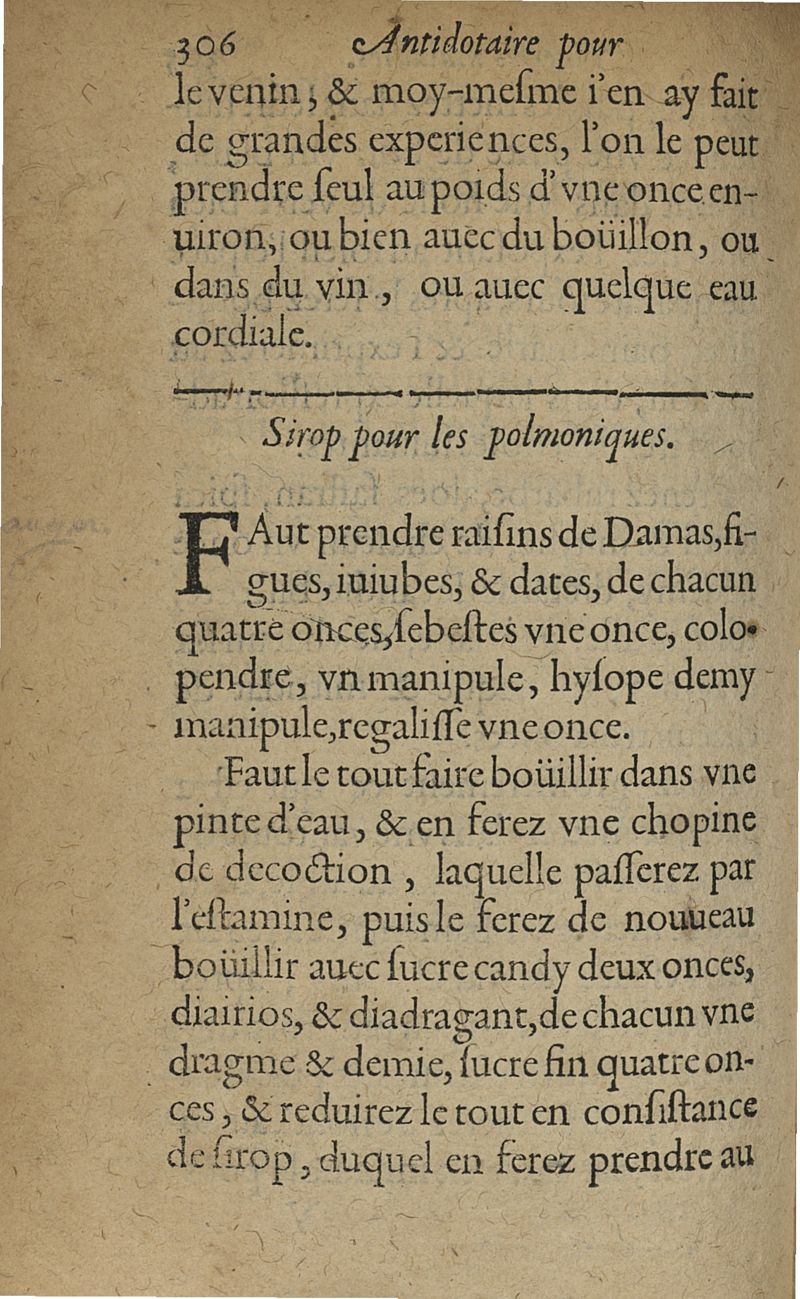 306 Antidotaire pour
le venin, & moy-meſme i'en ay fait
de grandes experiences, l'on le peut
prendre ſeul au poids d'vne once en-
uiron, ou bien auec du boüillon, ou
dans du vin, ou auec quelque eau
cordiale.
Sirop pour les polmoniques.
FAut prendre raiſins de Damas, fi-
gues, iuiubes, & dates, de chacun
quatre onces, ſebeſtes vne once, colo-
pendre, vn manipule, hyſope demy
manipule, regaliſſe vne once.
Faut le tout faire boüillir dans vne
pinte d'eau, & en ferez vne chopine
de decoction, laquelle paſſerez par
l'eſtamine, puis le ferez de nouueau
boüillir auec ſucre candy deux onces,
diairios, & diadragant, de chacun vne
dragme & demie, ſucre fin quatre on-
ces, & reduirez le tout en conſiſtance
de ſirop, duquel en ferez prendre au